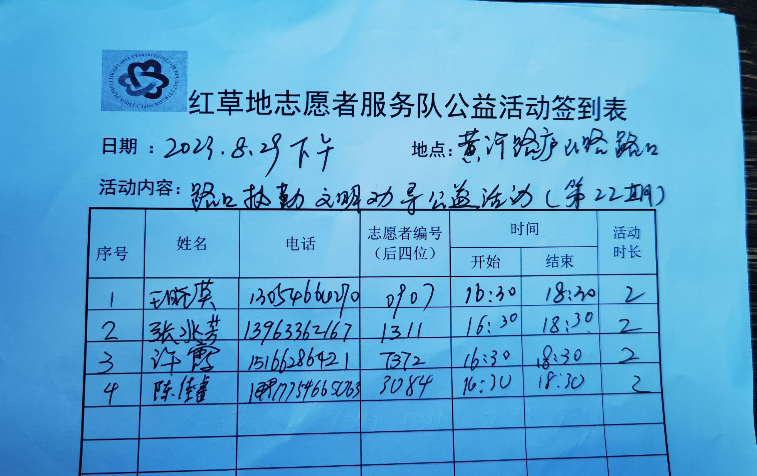 红草地志愿者服务队公益活动签到表
日期：2023.8.29下午 地点：黄河路庐山路路口
活动内容：路口执勤 文明劝导公益活动（第22期）
序号 姓名 电话 志愿者编号（后四位） 时间 开始 结束 活动时长
1 王晓琪 13054660270 0907 16:30 18:30 2
2 张冰芳 13963362167 1311 16:30 18:30 2
3 许霞 15166286421 7372 16:30 18:30 2
4 陈佳睿 17754665063 3084 16:30 18:30 2